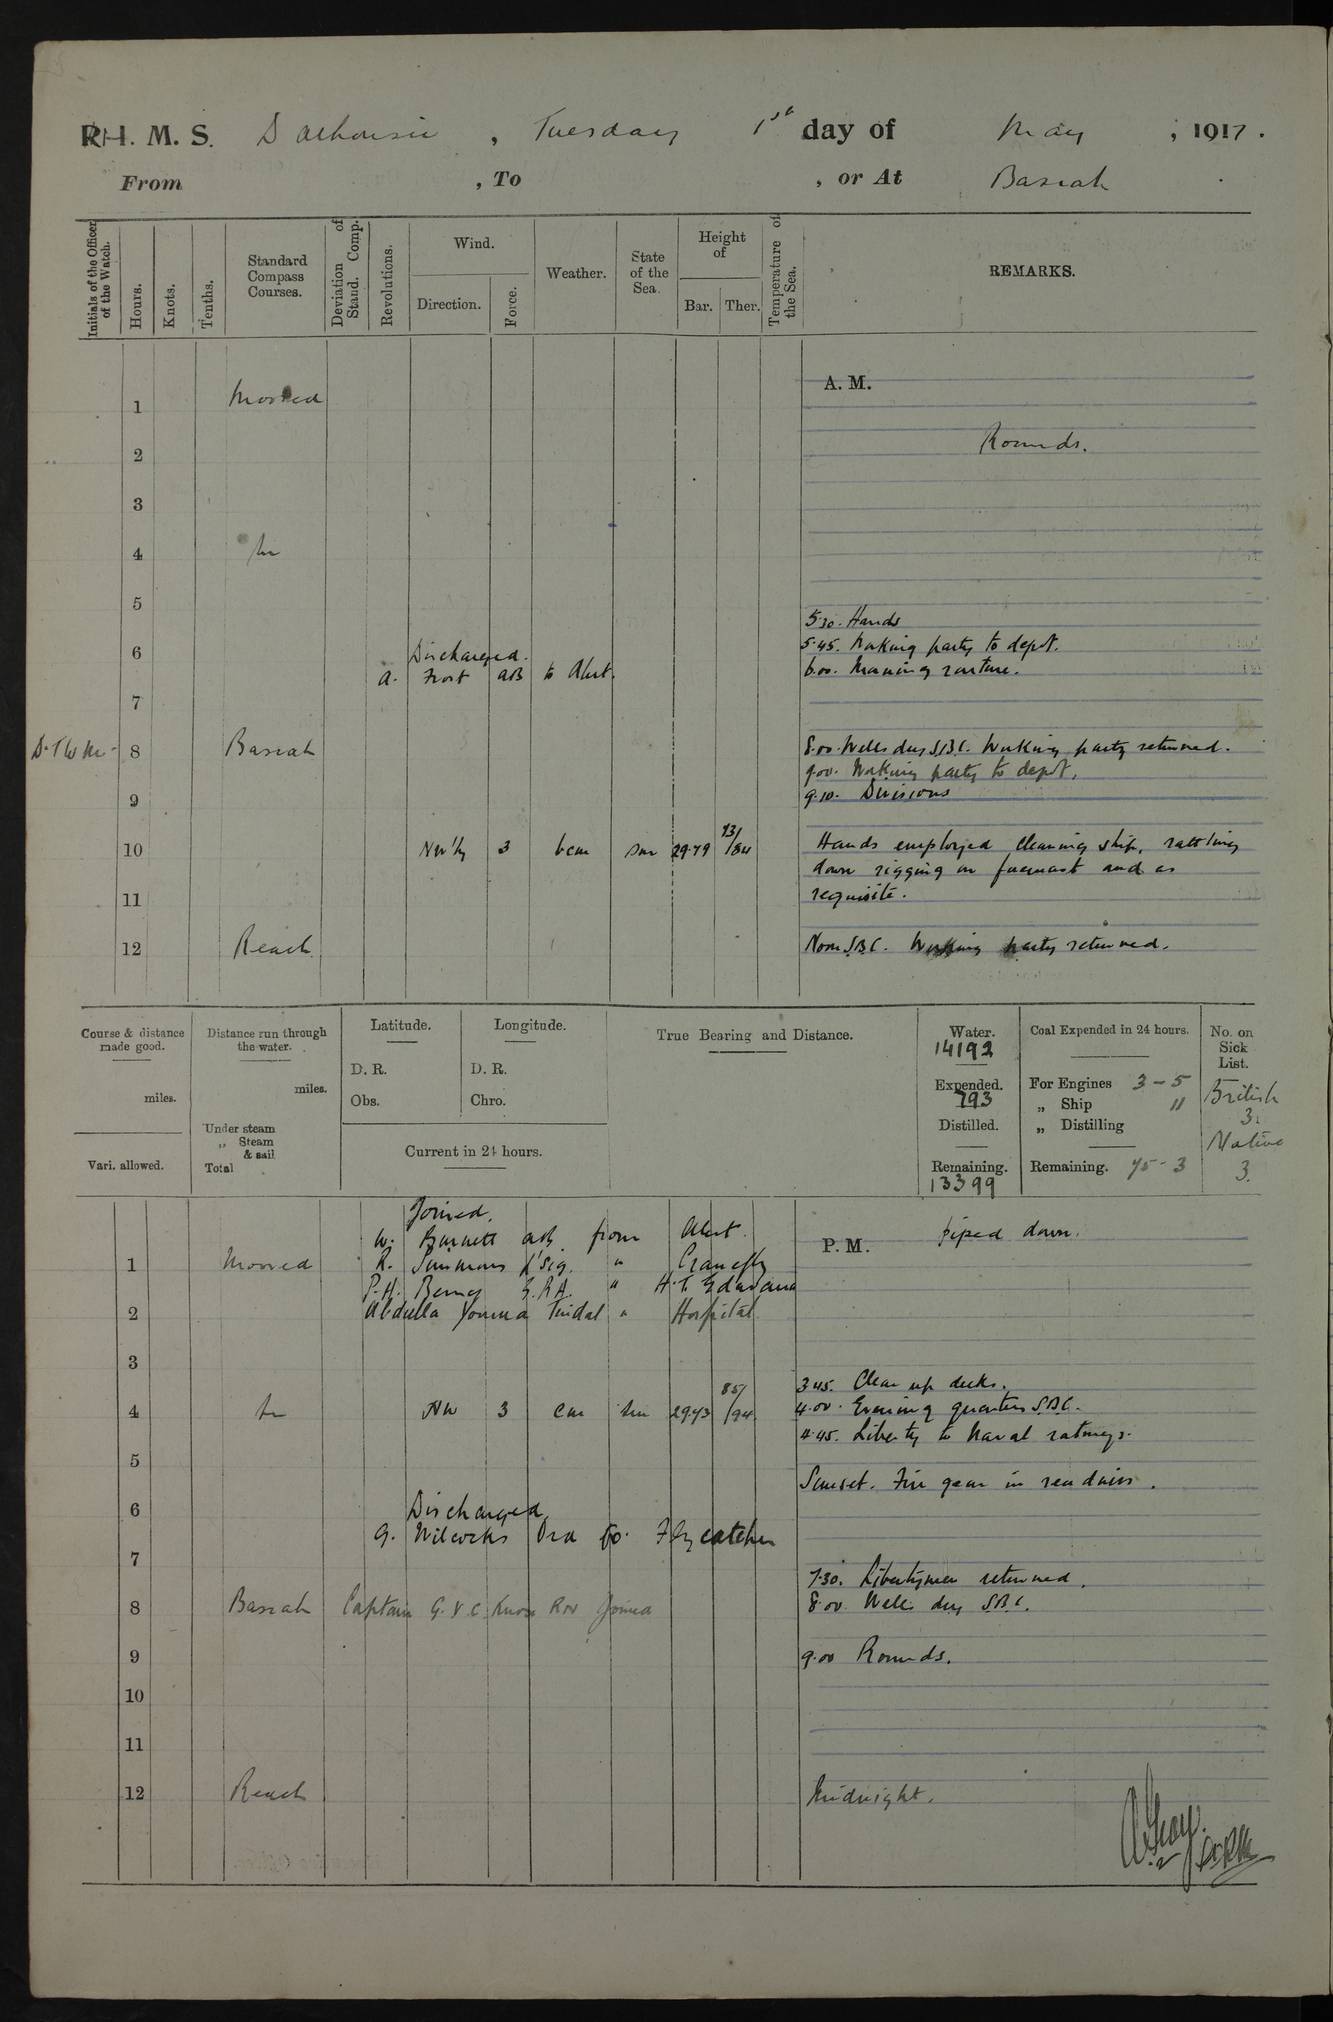 R.H. M. S. Dalhousie, Tuesday 1st day of May, 1917.
From , To , or At Basrah
Initials of the Officer of the Watch.
Hours.
Knots.
Tenths.
Standard Compass Courses.
Deviation of Stand. Comp.
Revolutions.
Wind.
Direction.
Force.
Weather.
State of the Sea.
Height of
Bar. Ther.
Temperature of the Sea.
REMARKS.
A. M.
1 Moored
Rounds.
2
3
4 in
5
5.30. Hands
5.45. Working party to depot.
6 Discharged.
A. Frost AB to Alert.
6.00. Manning routine.
7
8 Basrah 8.00. Wells dry S.B.C. Working party returned.
9.00. Working party to depot.
9 9.10. Divisions
10 NW'ly 3 bcm sm 29.79 73/84 Hands employed cleaning ship, rattling
down rigging on foremast and as
11 requisite.
12 Reach Noon S.B.C. Working party returned.
Course & distance made good.
miles.
Vari. allowed.
Distance run through the water.
miles.
Under steam
„ Steam & sail
Total
Latitude.
D. R.
Obs.
Longitude.
D. R.
Chro.
Current in 24 hours.
True Bearing and Distance.
Water.
14192
Expended.
793
Distilled.
Remaining.
13399
Coal Expended in 24 hours.
For Engines 3 - 5
„ Ship 11
„ Distilling
Remaining. 75 - 3
No. on Sick List.
British
3.
Native
3.
Joined.
W. Burnett AB. from Alert.
P. M. piped down.
1 Moored R. Simmons " Cranefly
P.H. Berney " H.T. Edavana
2 Abdulla Tindal " Hospital
3
3.45. Clear up decks.
4 in NW 3 cm sm 29.73 85/94 4.00. Evening quarters S.B.C.
4.45. Liberty to Naval ratings.
5
Sunset. Fire gear in readiness.
6 Discharged
G. Wilcocks Ord to. Flycatcher
7
7.30. Libertymen returned.
8 Basrah Captain G. V. C. Knox RN Joined 8.00 Wells dry S.B.C.
9 9.00 Rounds.
10
11
12 Reach Midnight.